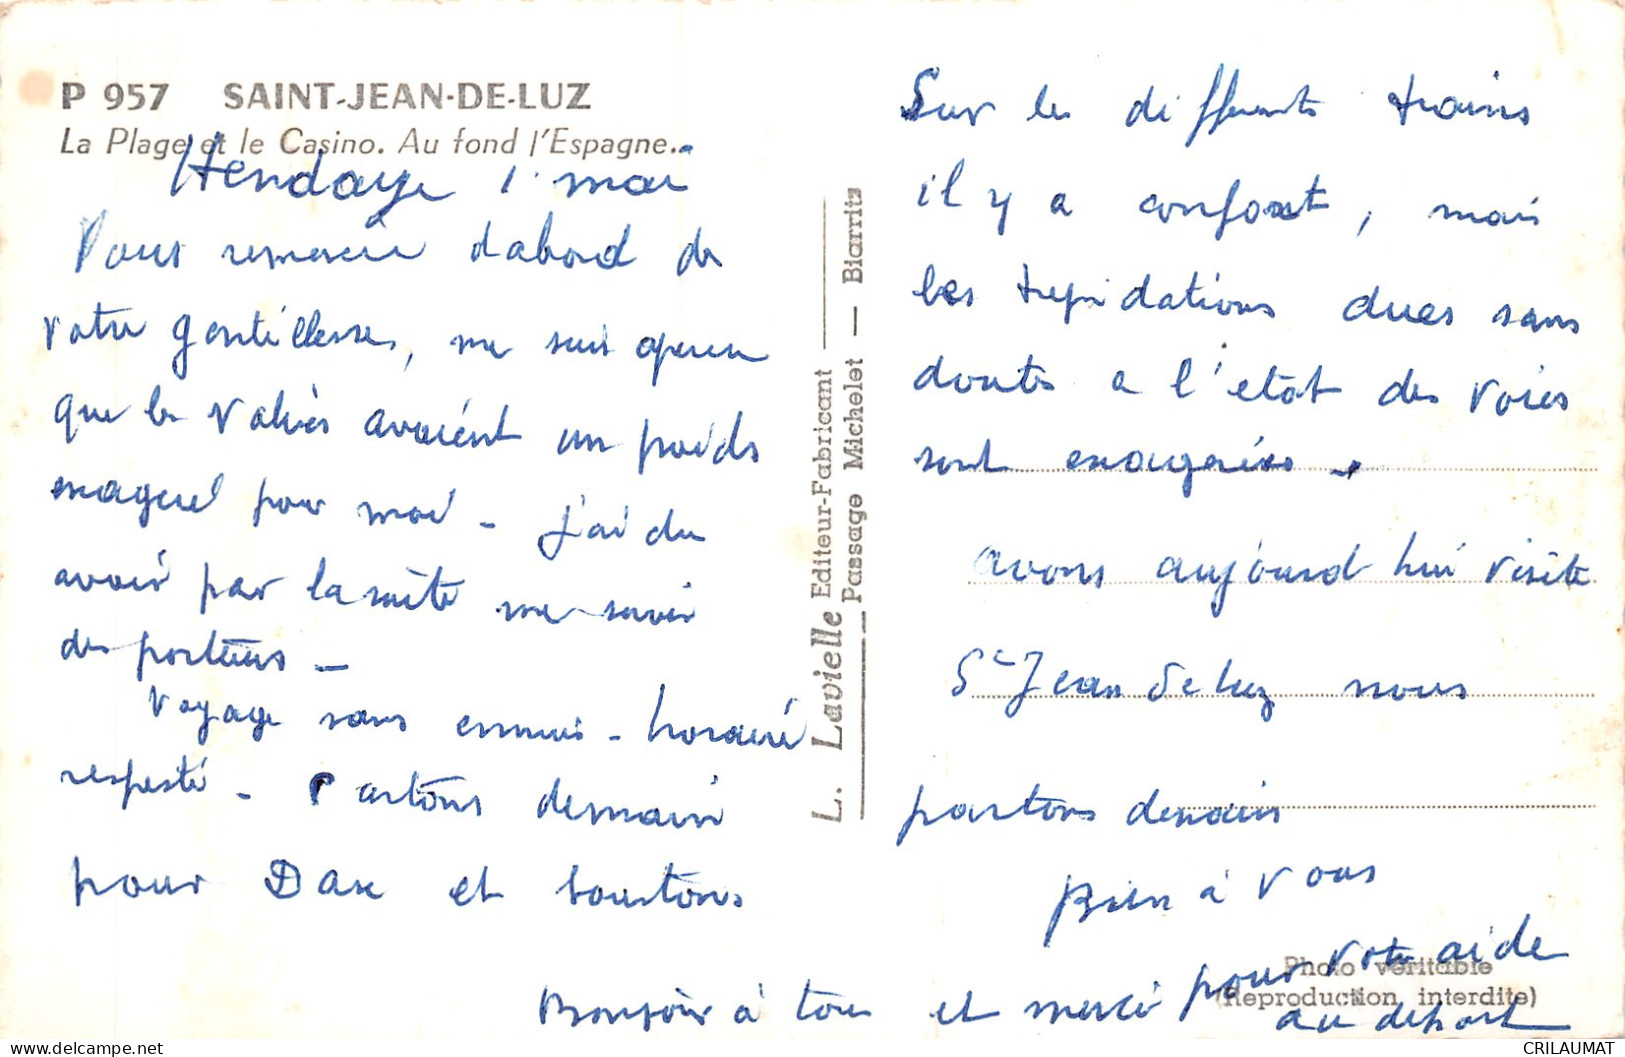 P 957 SAINT-JEAN-DE-LUZ
La Plage et le Casino. Au fond l'Espagne.
Hendaye 1 mai
Vous remercie d'abord de
votre gentillesse, me suis aperçu
que les valises avaient un poids
exageré pour moi - j'ai du
avoir par la suite me servir
des porteurs -
Voyage sans ennuis - horaire
respecté - Partons demain
pour Dax et Soustons
L. Lavielle Editeur-Fabricant
Passage Michelet — Biarritz
Sur les differents trains
il y a confort, mais
les trepidations dues sans
doute a l'etat des voies
sont exagerées -
avons aujourd hui visité
St Jean de luz nous
partons demain
Bien à vous
Bonsoir à tous et merci pour votre aide
au depart
Photo véritable
(Reproduction interdite)
CRILAUMAT